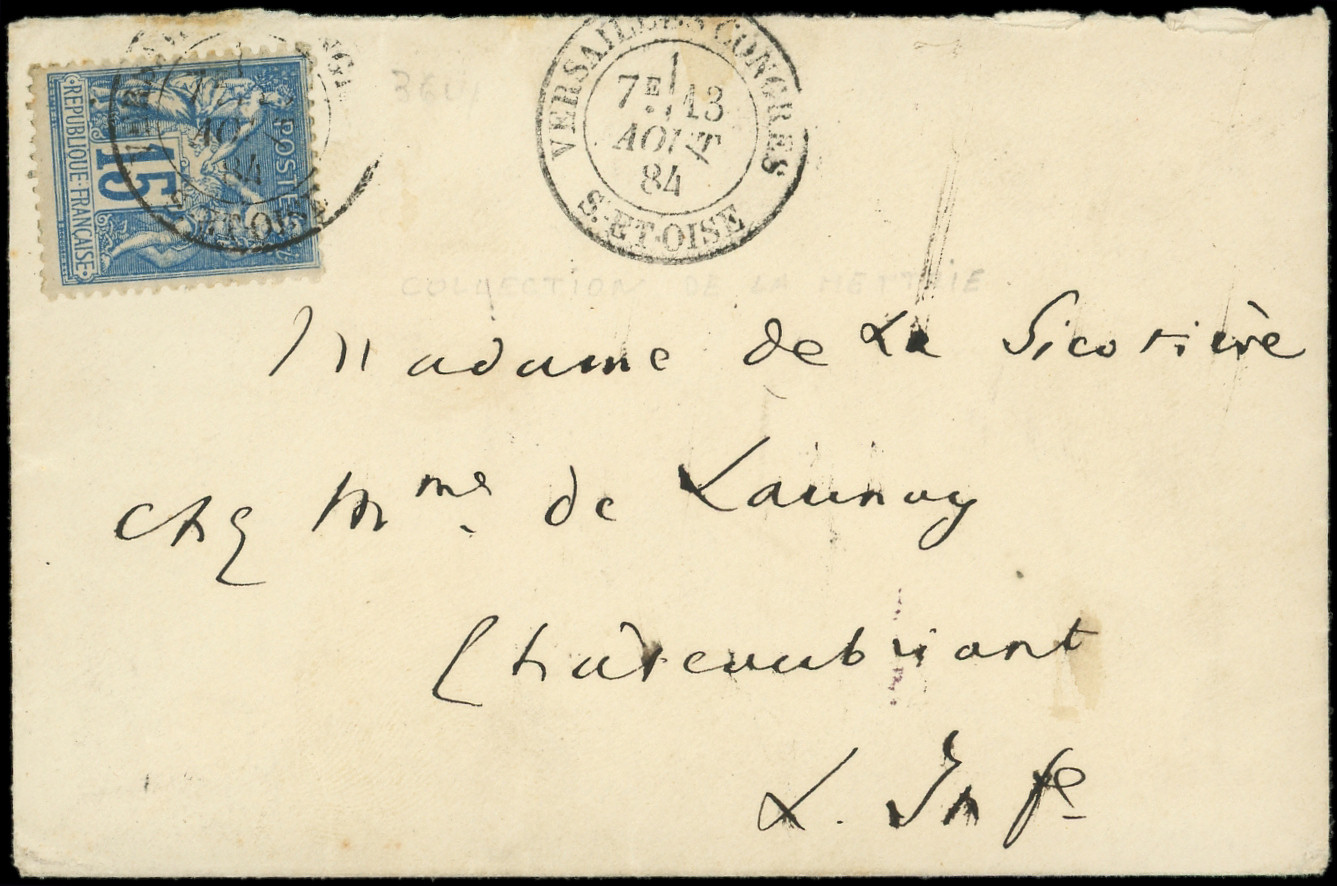 REPUBLIQUE FRANÇAISE
15
POSTES
AO
84
S-ET-OISE
VERSAILLES CONGRES
7E 13
AOUT
84
S.-ET-OISE
COLLECTION DE LA METTRIE
Madame de La Sicotière
Chez Mme de Launay
Châteaubriant
L. Infe